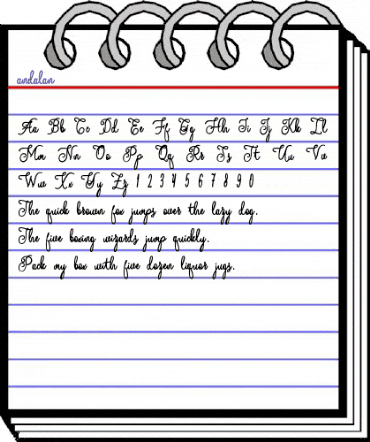 andalan
Aa Bb Cc Dd Ee Ff Gg Hh Ii Jj Kk Ll
Mm Nn Oo Pp Qq Rr Ss Tt Uu Vv
Ww Xx Yy Zz 1 2 3 4 5 6 7 8 9 0
The quick brown fox jumps over the lazy dog.
The five boxing wizards jump quickly.
Pack my box with five dozen liquor jugs.